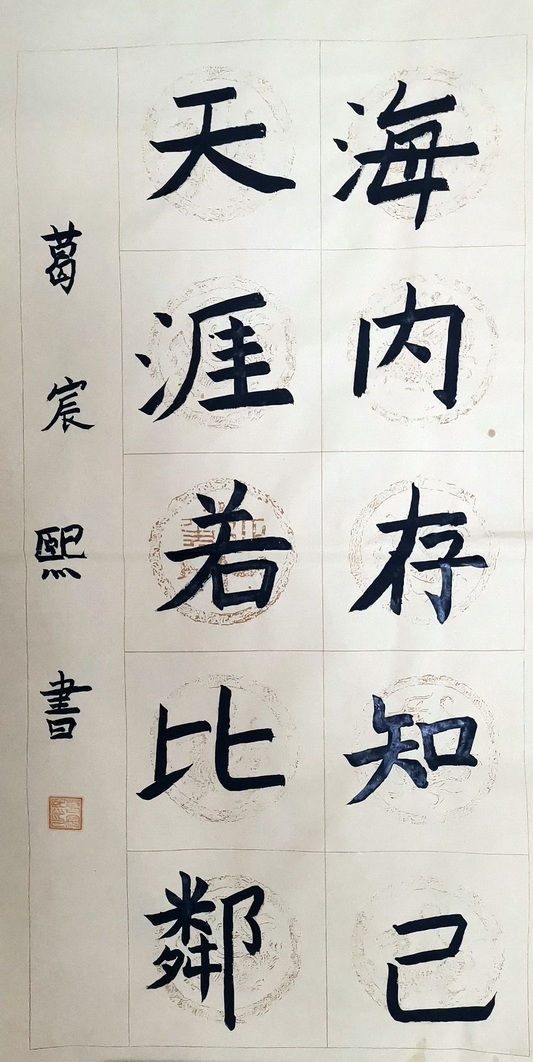 海内存知己
天涯若比鄰
葛宸熙書